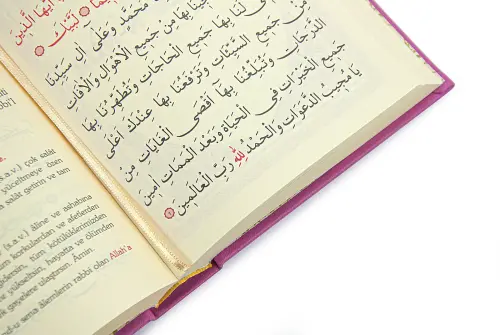 اَيُّهَا الَّذِينَ
لَبَّيْكَ
مُحَمَّدٍ وَعَلَى اٰلِ سَيِّدِنَا
بِهَا مِنْ جَمِيعِ الْاَهْوَالِ وَالْاٰفَاتِ
لَنَا بِهَا جَمِيعَ الْحَاجَاتِ وَتُطَهِّرُنَا بِهَا
مِنْ جَمِيعِ السَّيِّئَاتِ وَتَرْفَعُنَا بِهَا عِنْدَكَ اَعْلَى
الدَّرَجَاتِ وَتُبَلِّغُنَا بِهَا اَقْصَى الْغَايَاتِ مِنْ
جَمِيعِ الْخَيْرَاتِ فِي الْحَيَاةِ وَبَعْدَ الْمَمَاتِ اٰمِينَ
يَا مُجِيبَ الدَّعَوَاتِ وَالْحَمْدُ لِلّٰهِ رَبِّ الْعَالَمِينَ
(s.a.v.) çok salât
yüceltmeye özen
salât getirin ve tam
(s.a.v.) âline ve ashabına
korkulardan ve afetlerden
tüm kötülüklerimizden
yükselsin, hayatta ve ölümden
gayelere ulaştırsın. Âmin.
sena âlemlerin rabbi olan Allah'a